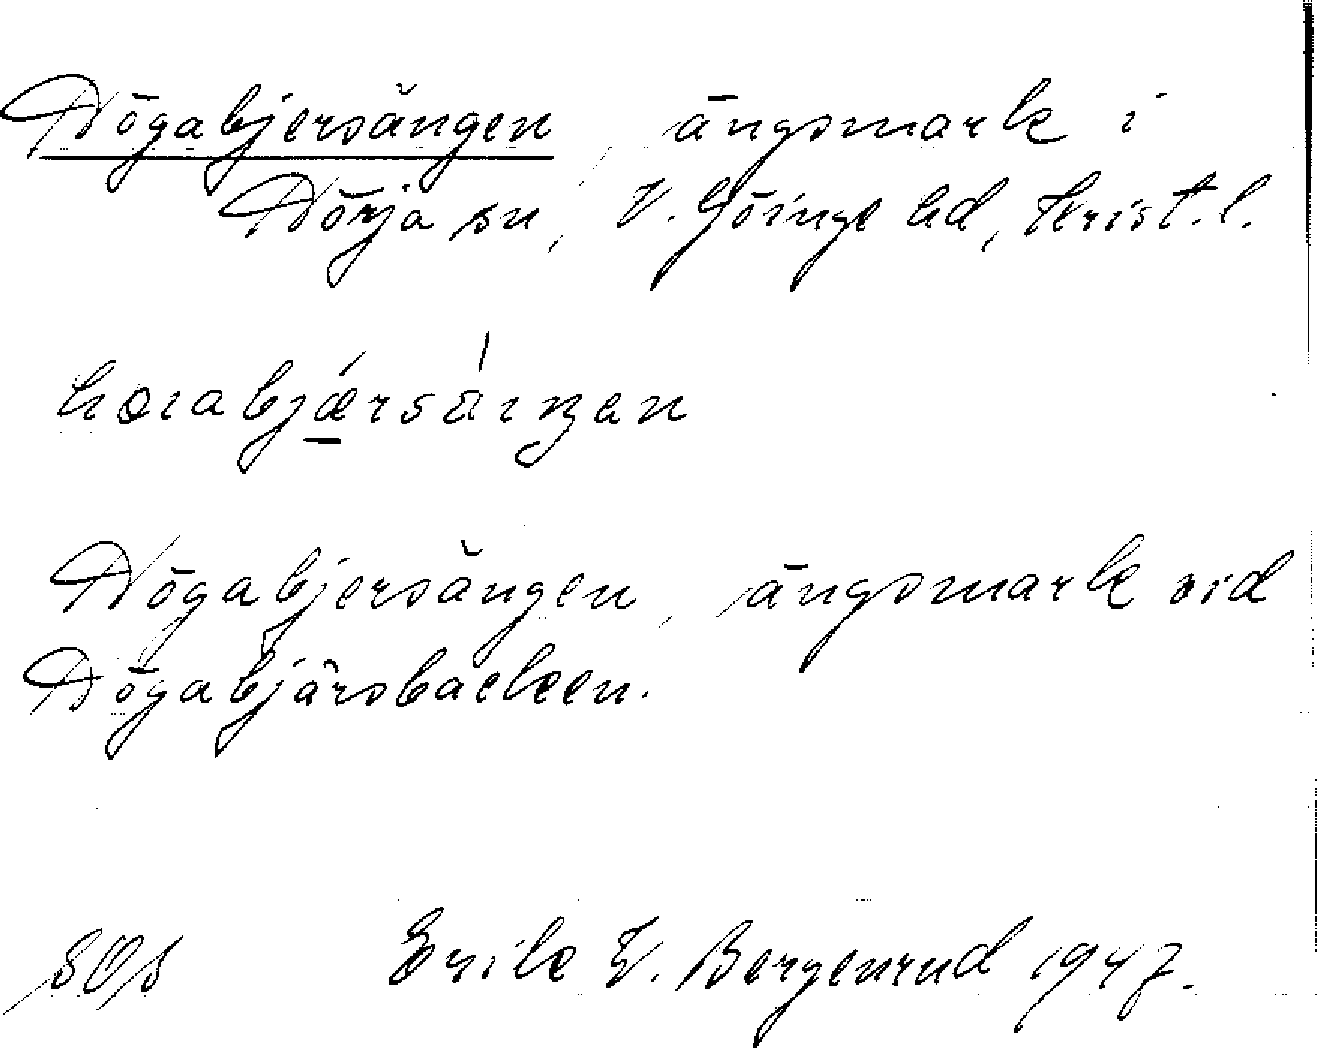 Högabjersängen, ängsmark i
Hörja sn, V. Göinge hd, Krist. l.
Högabjersängen, ängsmark vid
Högabjärsbacken.
SOS Erik V. Bergenrud 1947.